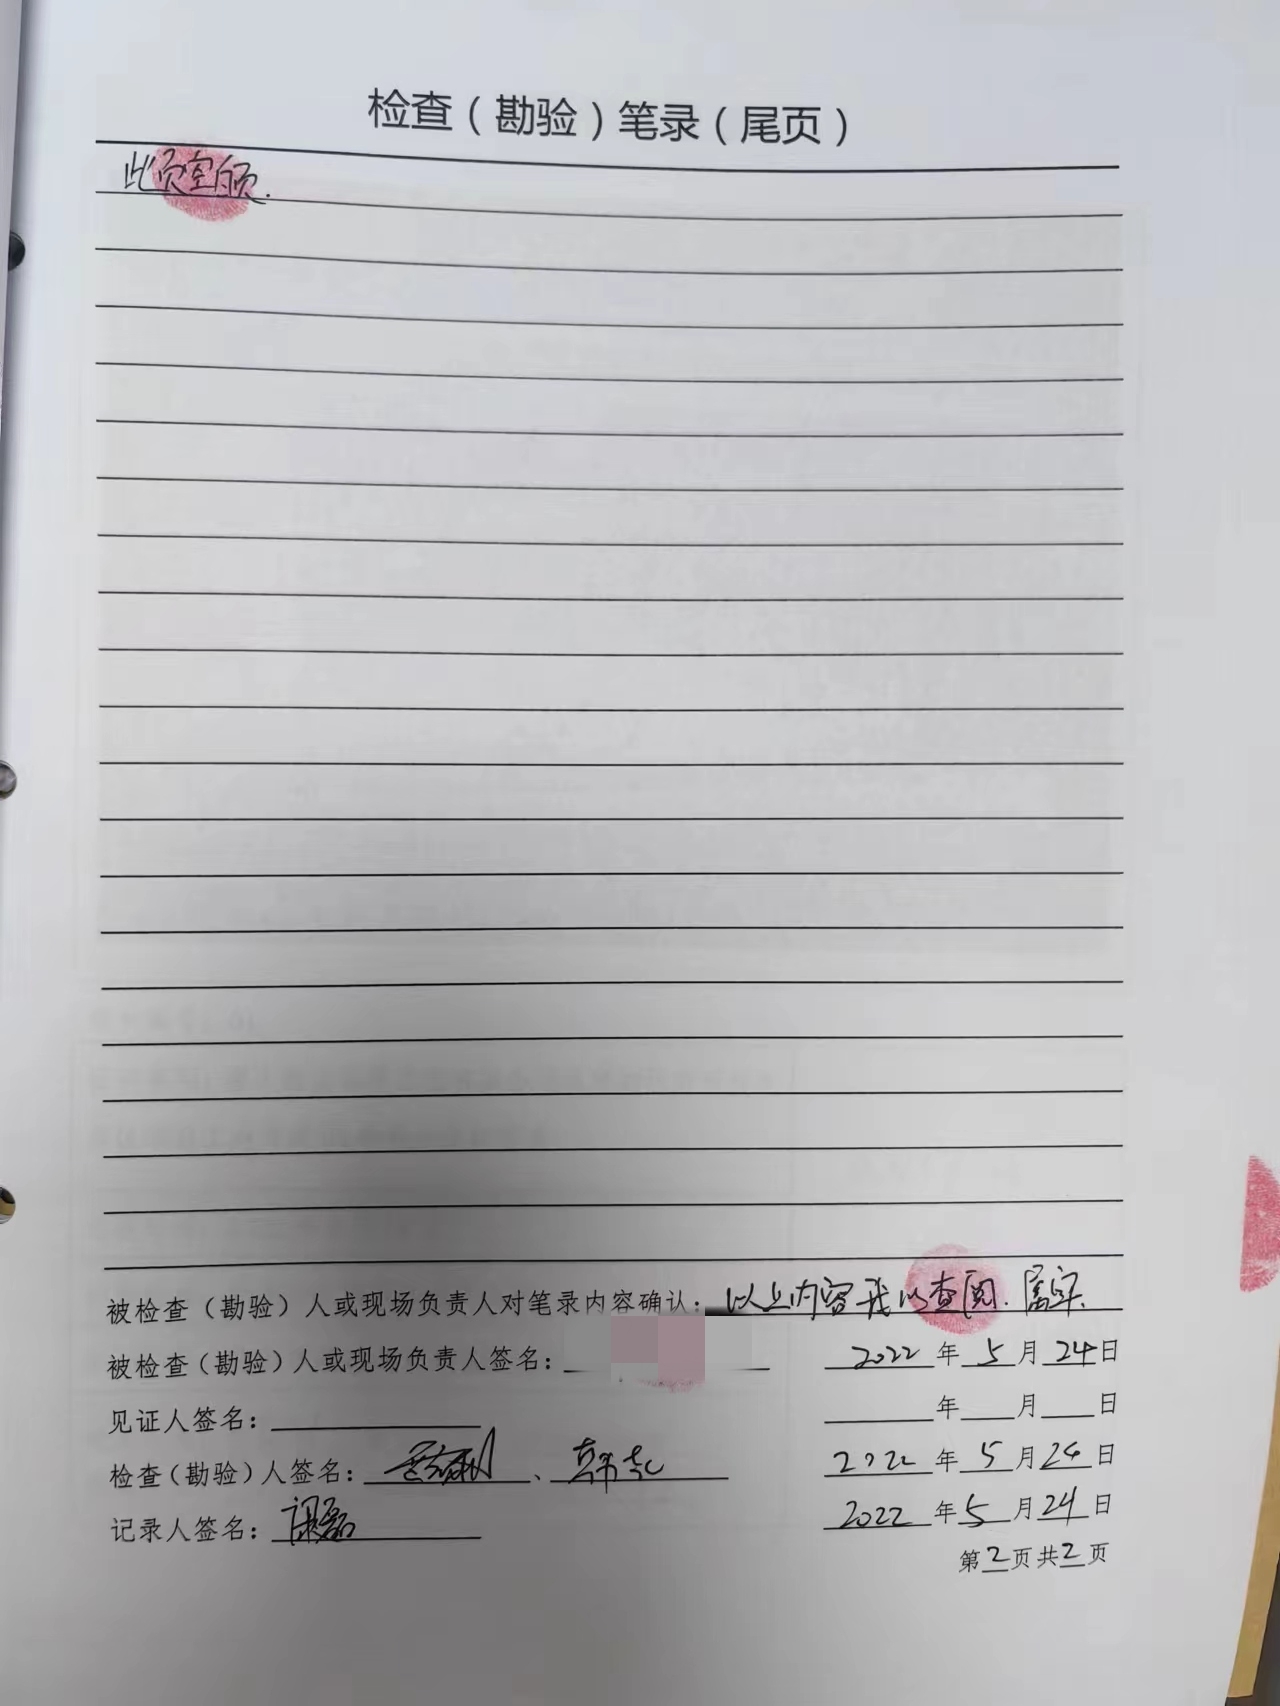 检查（勘验）笔录（尾页）
此页空白页.
被检查（勘验）人或现场负责人对笔录内容确认：以上内容我以查阅.属实.
被检查（勘验）人或现场负责人签名： 2022年5月24日
见证人签名： 年 月 日
检查（勘验）人签名： 、 2022年5月24日
记录人签名： 2022年5月24日
第2页共2页